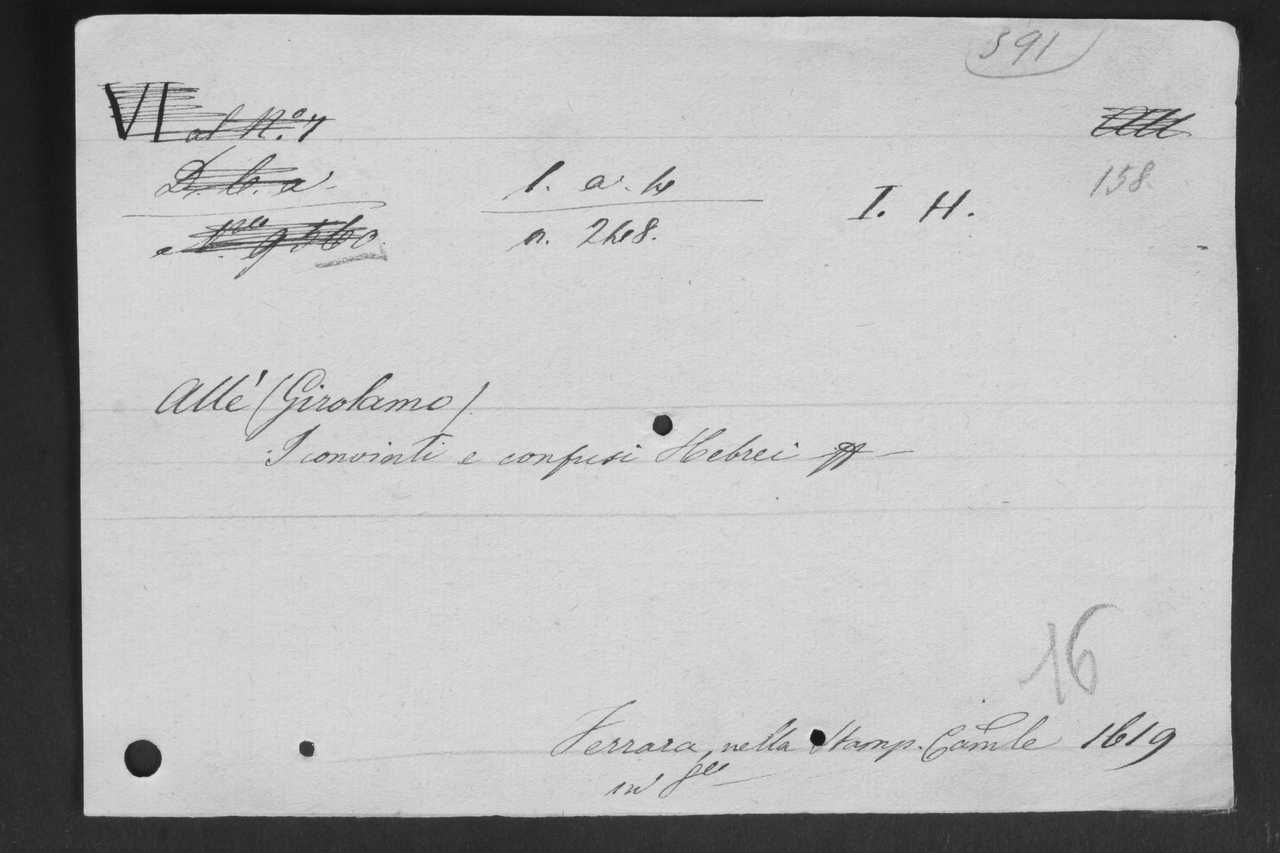 391
VI al N.º 7
D. C. a
1. a. 4
n. 248.
I. H.
158.
Allè (Girolamo)
I convinti e confusi Hebrei
16
Ferrara, nella Stamp. Camle 1619
in 8º